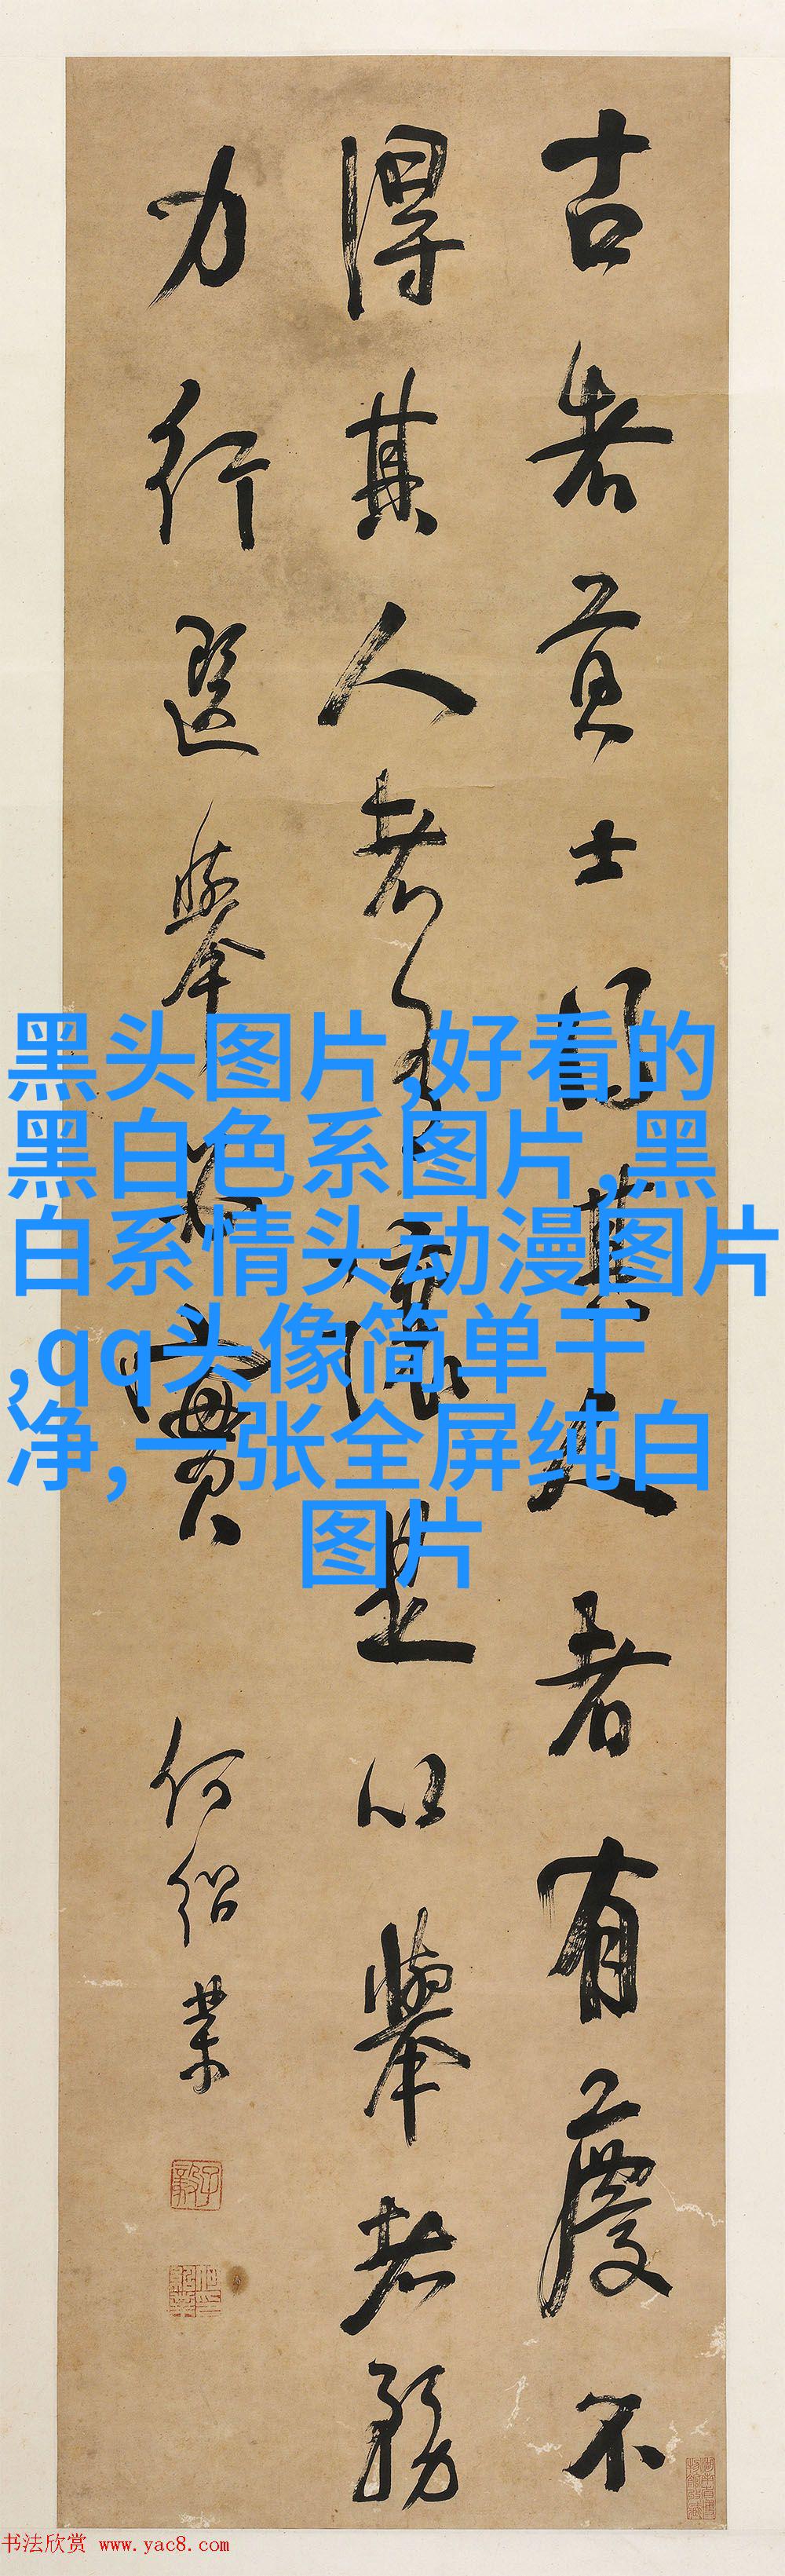 古者貢士得其人者有慶不
得其人者有讓是以舉者務
力行選舉不實
何紹業
黑头图片,好看的
黑白色系图片,黑
白系情头动漫图片
,qq头像简单干
净,一张全屏纯白
图片
书法欣赏 www.yac8.com